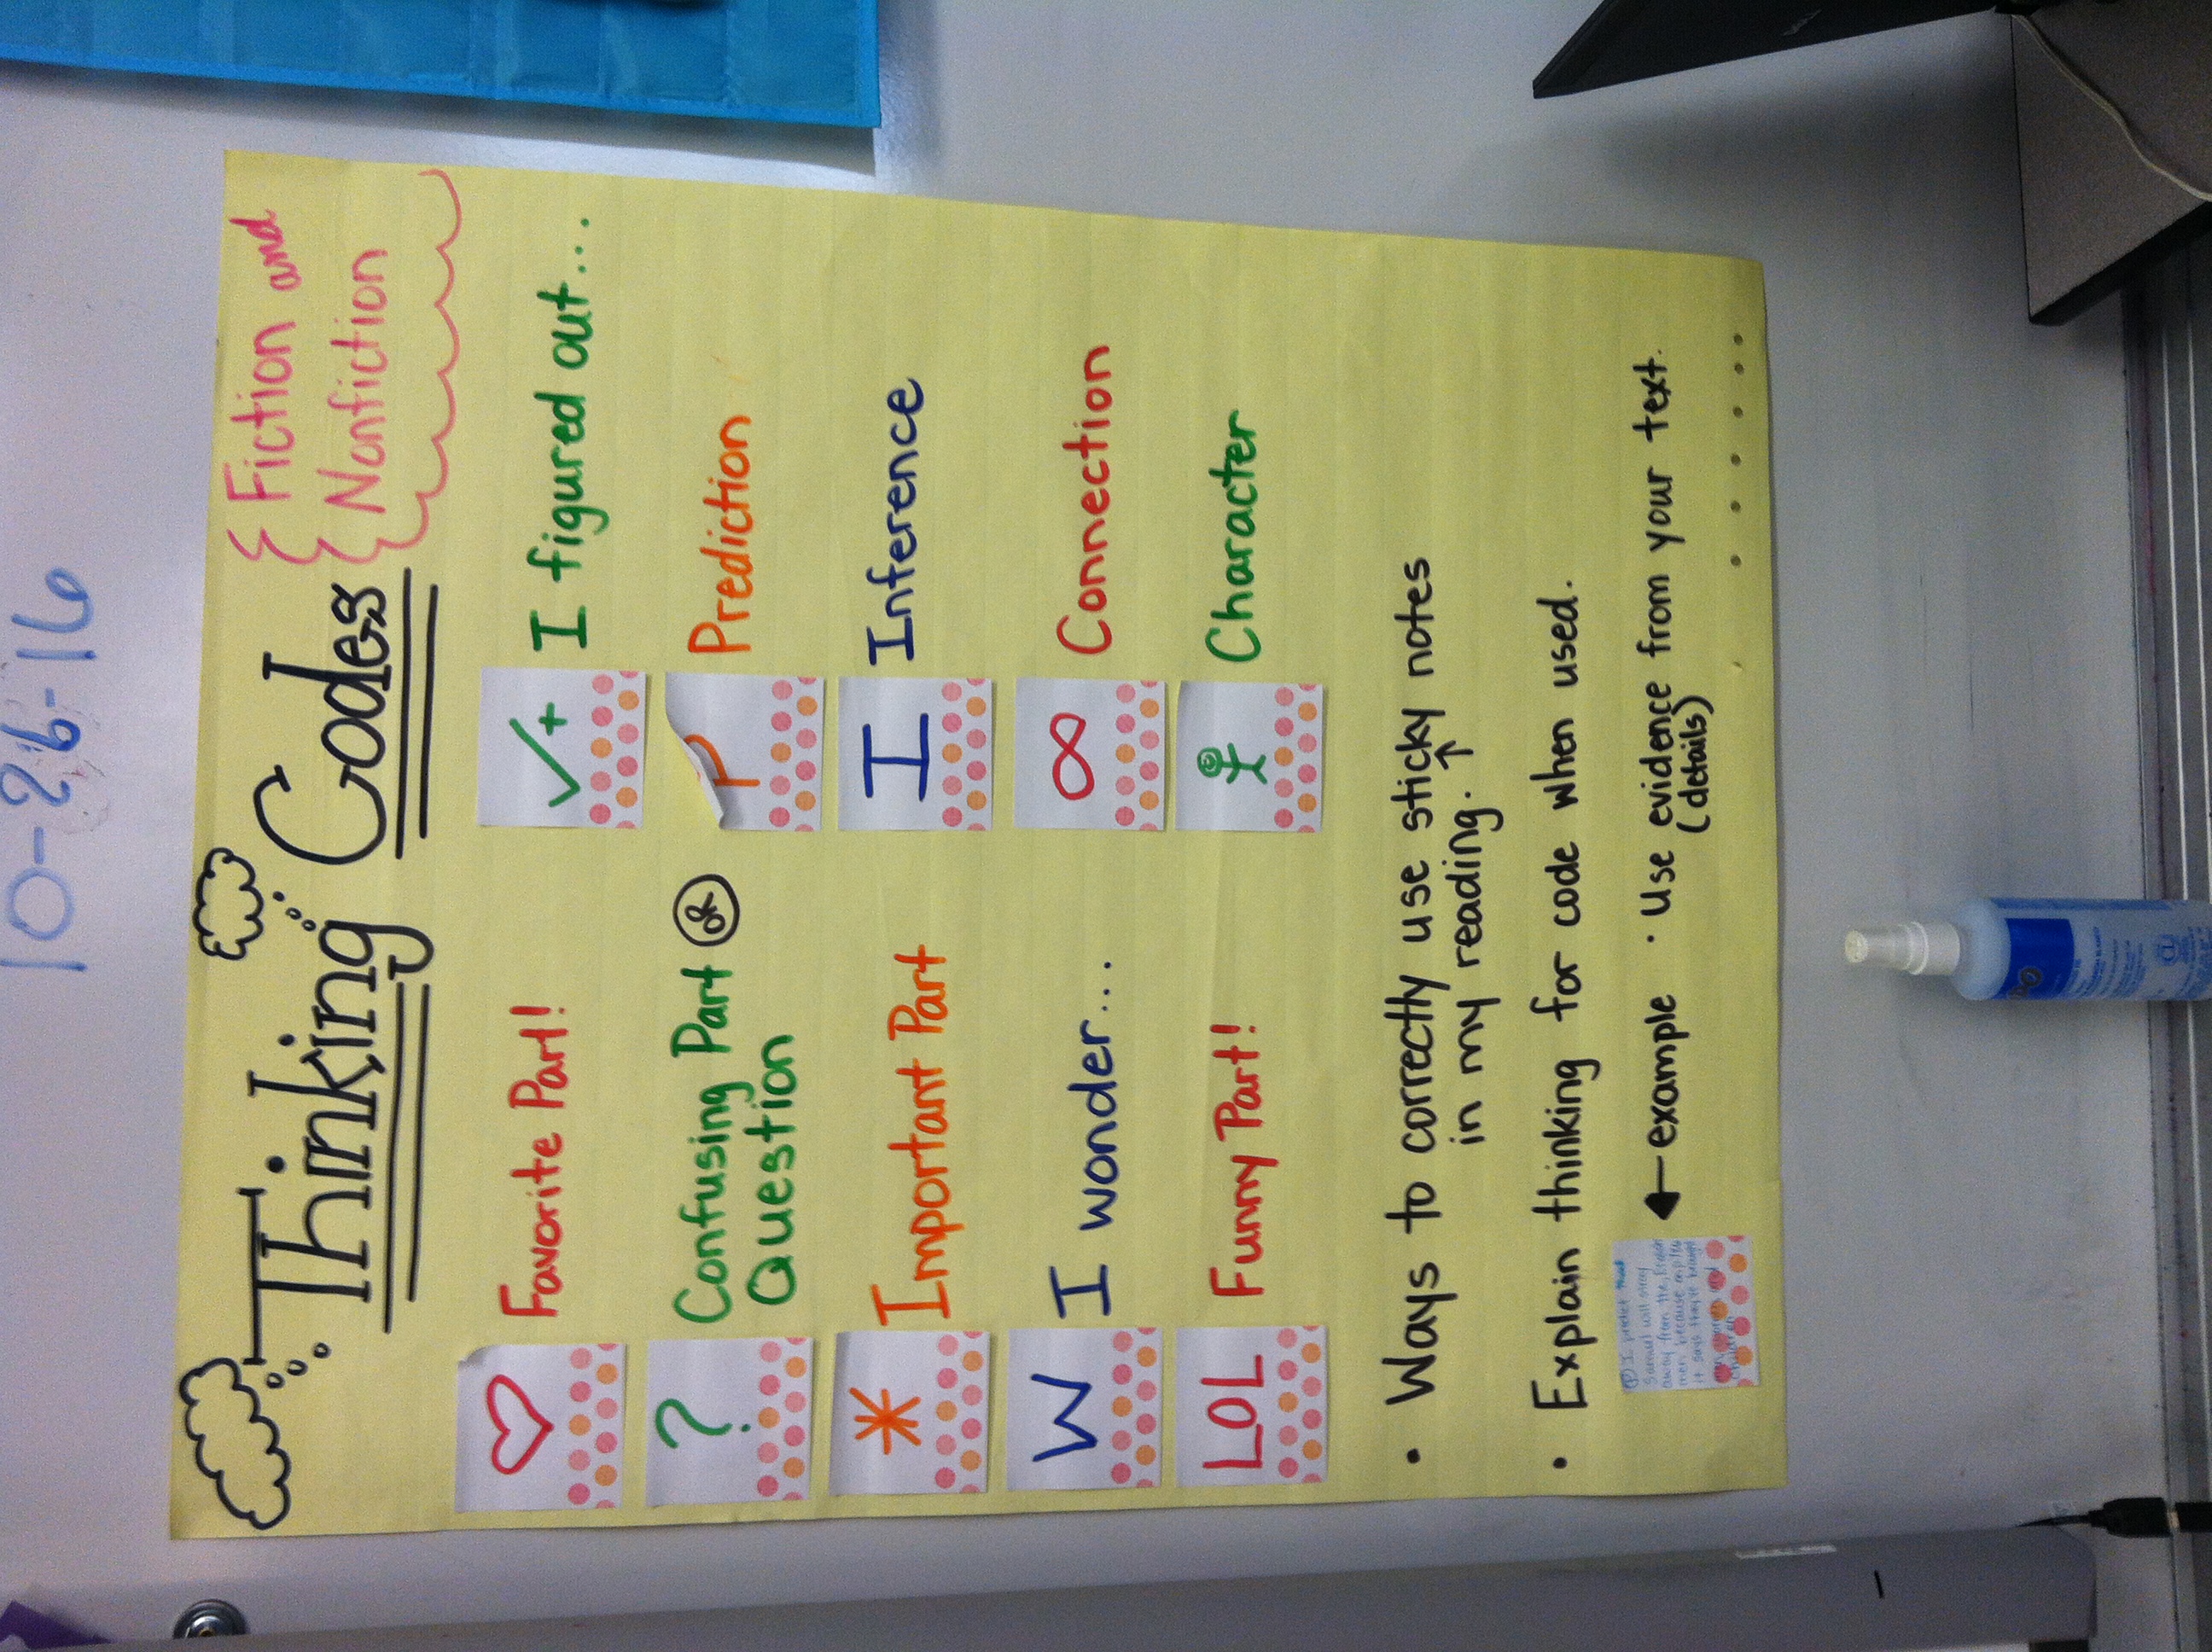 10-26-16
Thinking Codes
Fiction and
Nonfiction
♡ Favorite Part!
✓+ I figured out...
? Confusing Part or
Question
P Prediction
* Important Part
I Inference
W I wonder...
∞ Connection
LOL Funny Part!
Character
• Ways to correctly use sticky notes
in my reading. ↑
• Explain thinking for code when used.
P I predict that
Samuel will stay
away from the
men because
it says they're
children
← example • Use evidence from your text.
(details)